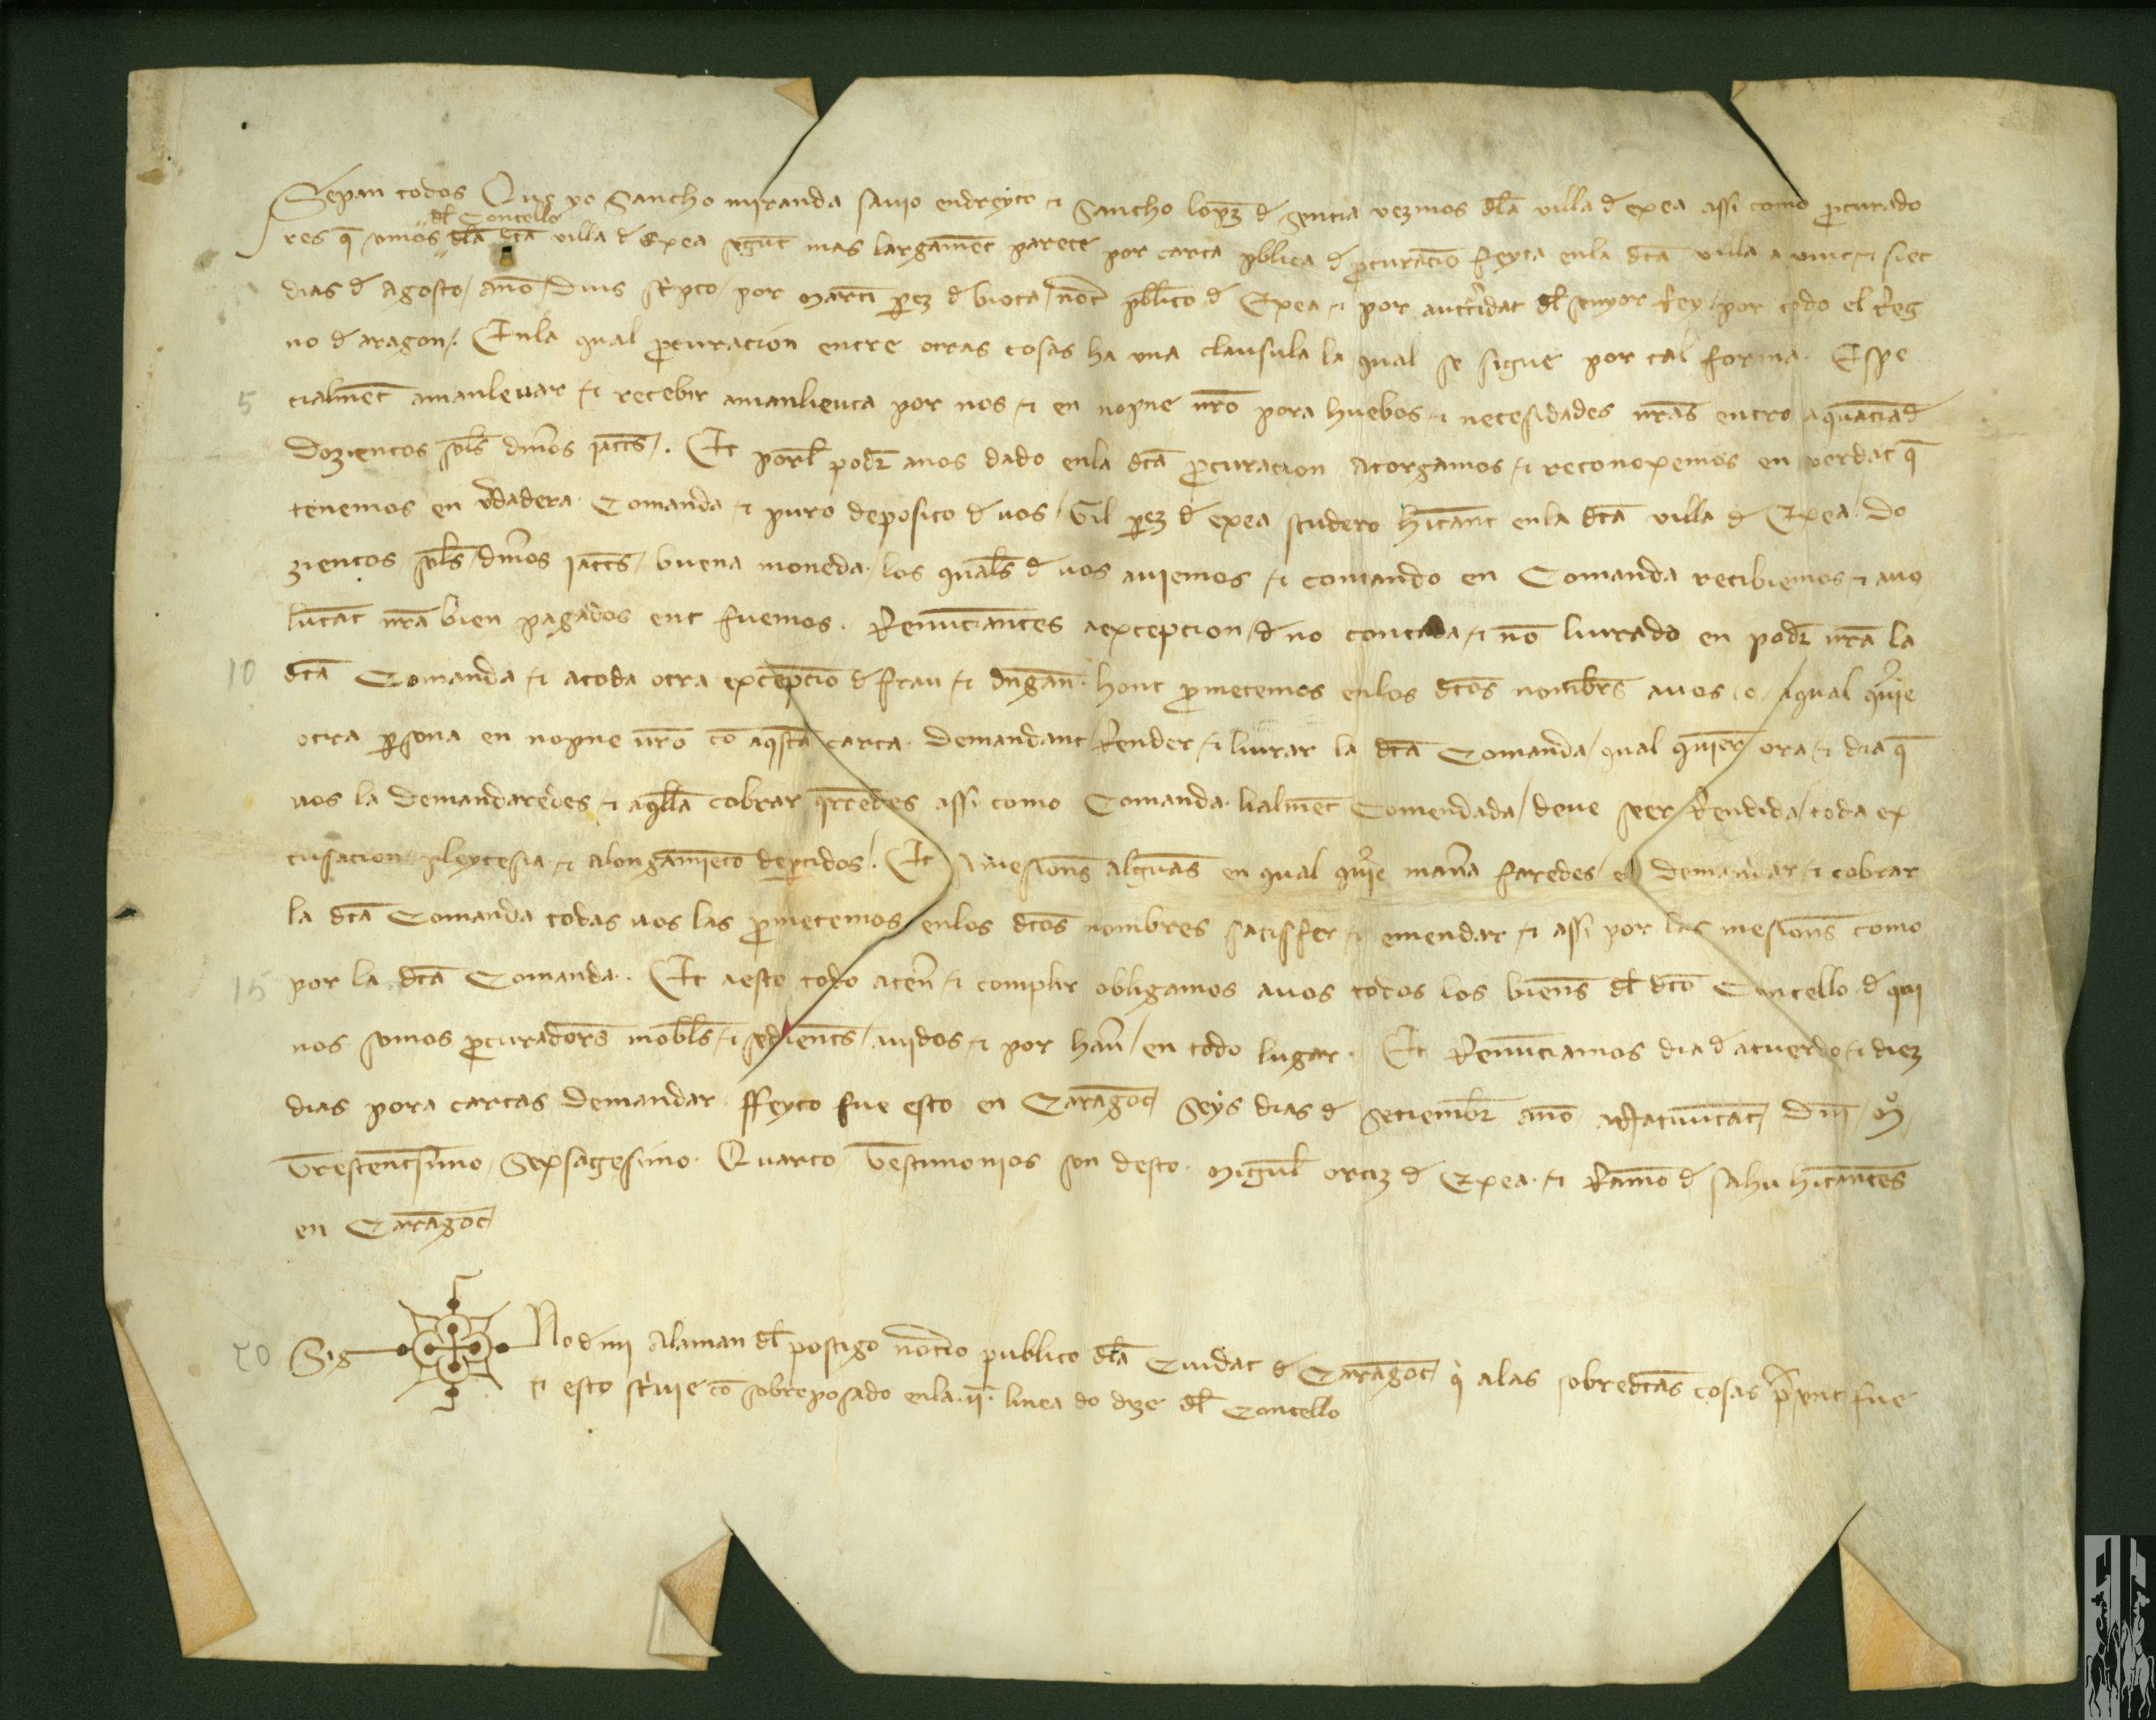 Sepan todos Que yo Sancho miranda savio endreyto ⁊ Sancho lopez d sentia vezinos dla villa d exea assi como pcurado
dl Concello
res q somos dla dta villa d Exea segunt mas largament parece por carta pblica d pcuracio feyta enla dta villa a vint ⁊ siet
dias d Agosto / ano / dius scpto / por Marti pez d biota / not pblico d Exea ⁊ por auctidat dl senyor Rey / por todo el Reg
no d aragon. Enla qual pcuracion entre otras cosas ha una clausula la qual se sigue por tal forma. Espe
5 cialment amanlevar ⁊ recebir amanlieuta por nos ⁊ en nopne nro pora huebos ⁊ necesidades nras entro a quantiad
Dozientos sols dnos iaccs. Et porl poder a nos dado enla dta pcuracion Atorgamos ⁊ reconoxemos en verdat q
tenemos en vdadera Comanda ⁊ puro deposito d vos / Gil pez d exea / scudero hitant enla dta villa d Exea / Do
zientos sols / dnos iaccs / buena moneda / los quals d vos aviemos ⁊ comando en Comanda recibiemos ⁊ a vo
luntat nra bien pagados ent fuemos. Renunciantes a excepcion / d no contada / ⁊ no livrado en poder nra la
10 dta Comanda ⁊ a toda otra excepcio d frau ⁊ dngan. hont pmetemos enlos dtos nombrs a vos / o / a qual qie
otra psona en nopne vro co aqsta carta. Demandant / Render / ⁊ livrar la dta Comanda / qual quier / ora ⁊ dia q
vos la demandaredes ⁊ aqlla cobrar qrredes assi como Comanda lialment Comendada / deve seer Rendida / toda ex
cusacion pleytesia ⁊ alongamieto deptidos. Et si mesions algunas en qual qie mana faredes / e / demandar ⁊ cobrar
la dta Comanda todas vos las pmetemos enlos dtos nombres satisfer ⁊ emendar ⁊ assi por las mesions como
15 por la dta Comanda. Et a esto todo aten ⁊ complir obligamos a vos todos los biens dl dto Concello d qui
nos somos pcuradors mobls ⁊ sedients / avidos ⁊ por hav / en todo lugar. Et Renunciamos dia d acuerdo ⁊ diez
dias pora cartas demandar. ffeyto fue esto en Caragoc Seys dias d Setiembr ano a Natiuitat Dni M
Trescentsimo / Sexsagesimo Quarto Testimonios son desto. Miguel ortiz d Exea ⁊ Ramo d sahu hitantes
en Caragoc
20 Sig no d mi Alaman dl postigo notrio publico dla Ciudat d Caragoc q a las sobredtas cosas psent fue
⁊ esto scuie co sobreposado enla .ii. linea do dize dl Concello